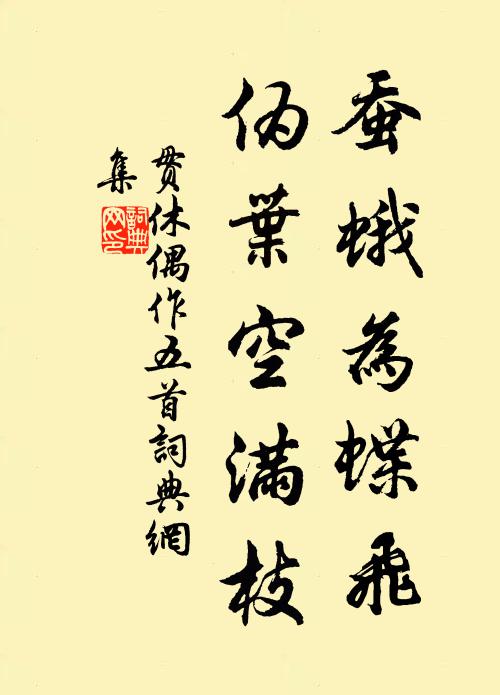 蚕蛾為蝶飛
伪葉空滿枝
貫休偶作五首詞典網
集
詞典
网印